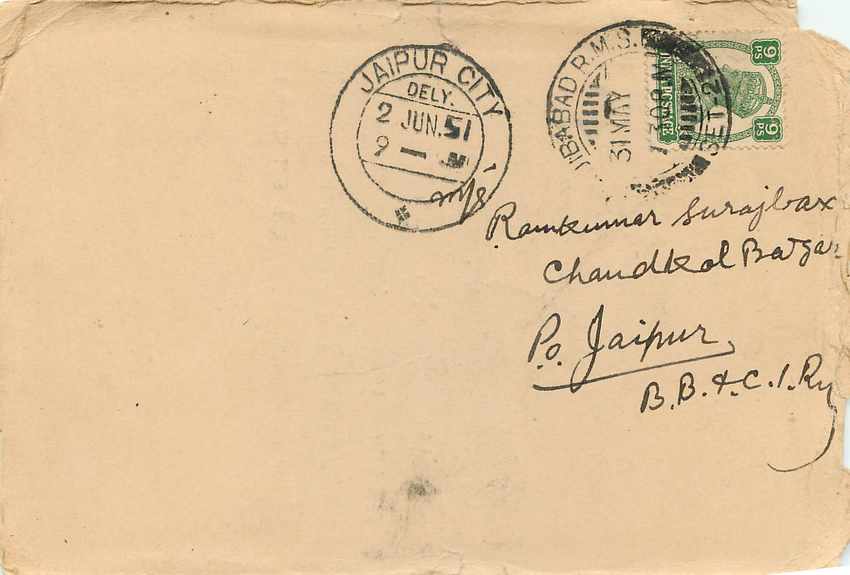 JAIPUR CITY
DELY.
2 JUN. 51
9
JIBABAD R.M.S.
31 MAY
SET-2
9 PS
INDIA POSTAGE
9 PS
M/s
Ramkumar Surajbax
Chandkol Bazar
P.O. Jaipur,
B.B. & C.I. Ry